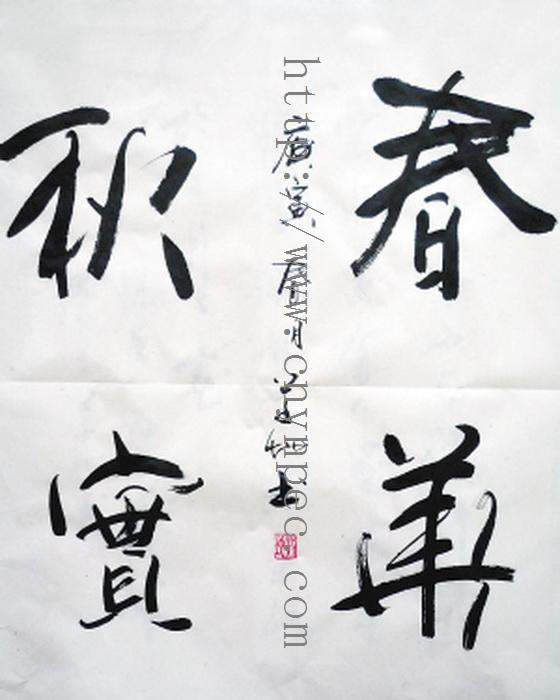 春華
秋實
庚寅
http://www.cnynpec.com